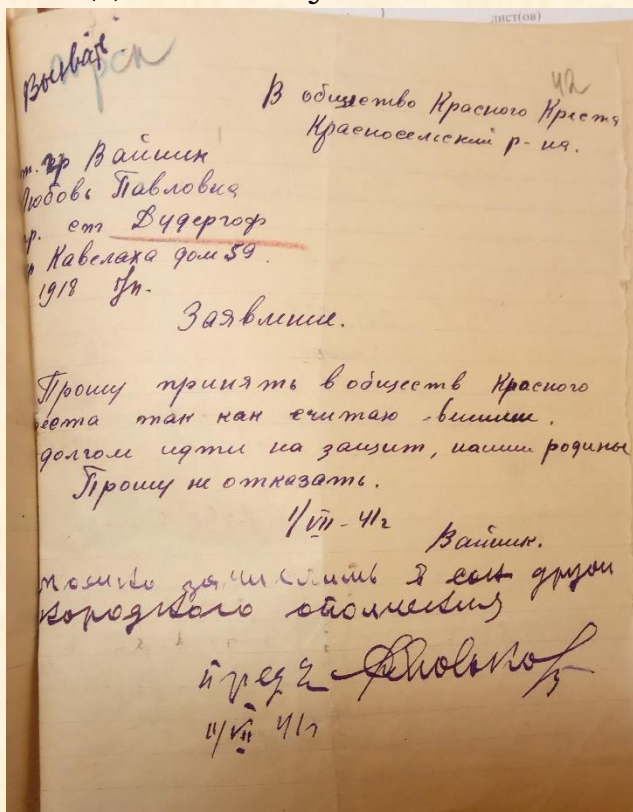 лист(ов)
Вызвать
42
В общество Красного Креста
Красносельский р-на.
Вайшик
Любовь Павловна
ст Дудергоф
Кавелаха дом 59.
1918 г/р.
Заявление.
Прошу принять в обществ Красного
еста так как считаю
долгом идти на защит, наши родины
Прошу не отказать.
1/VII-41г
Вайшик.
можно зачислить в сан дружи
народного ополчения
пред
11/VII 41г